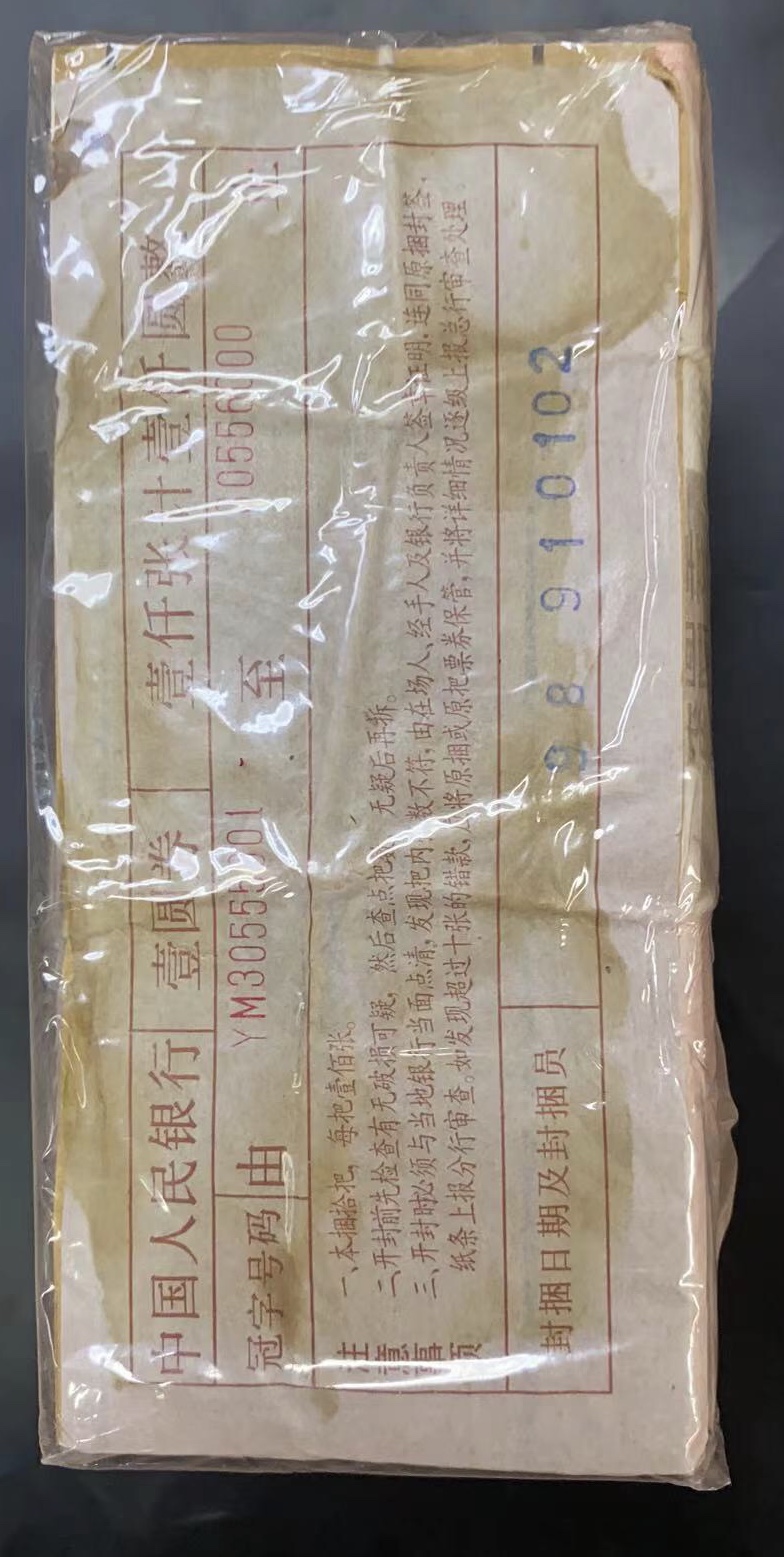 中国人民银行 壹圆券 壹仟张 计壹仟圆整
冠字号码 由 YM30555001 至 0556000 止
注意事项
一、本捆拾把，每把壹佰张。
二、开封前先检查有无破损可疑，然后查点把 无疑后再拆。
三、开封时必须与当地银行当面点清，发现把内 数不符，由在场人、经手人及银行负责人签章证明，连同原捆封签、
纸条上报分行审查。如发现超过十张的错款， 将原捆或原把票券保管，并将详细情况逐级上报总行审查处理。
封捆日期及封捆员 98 910102